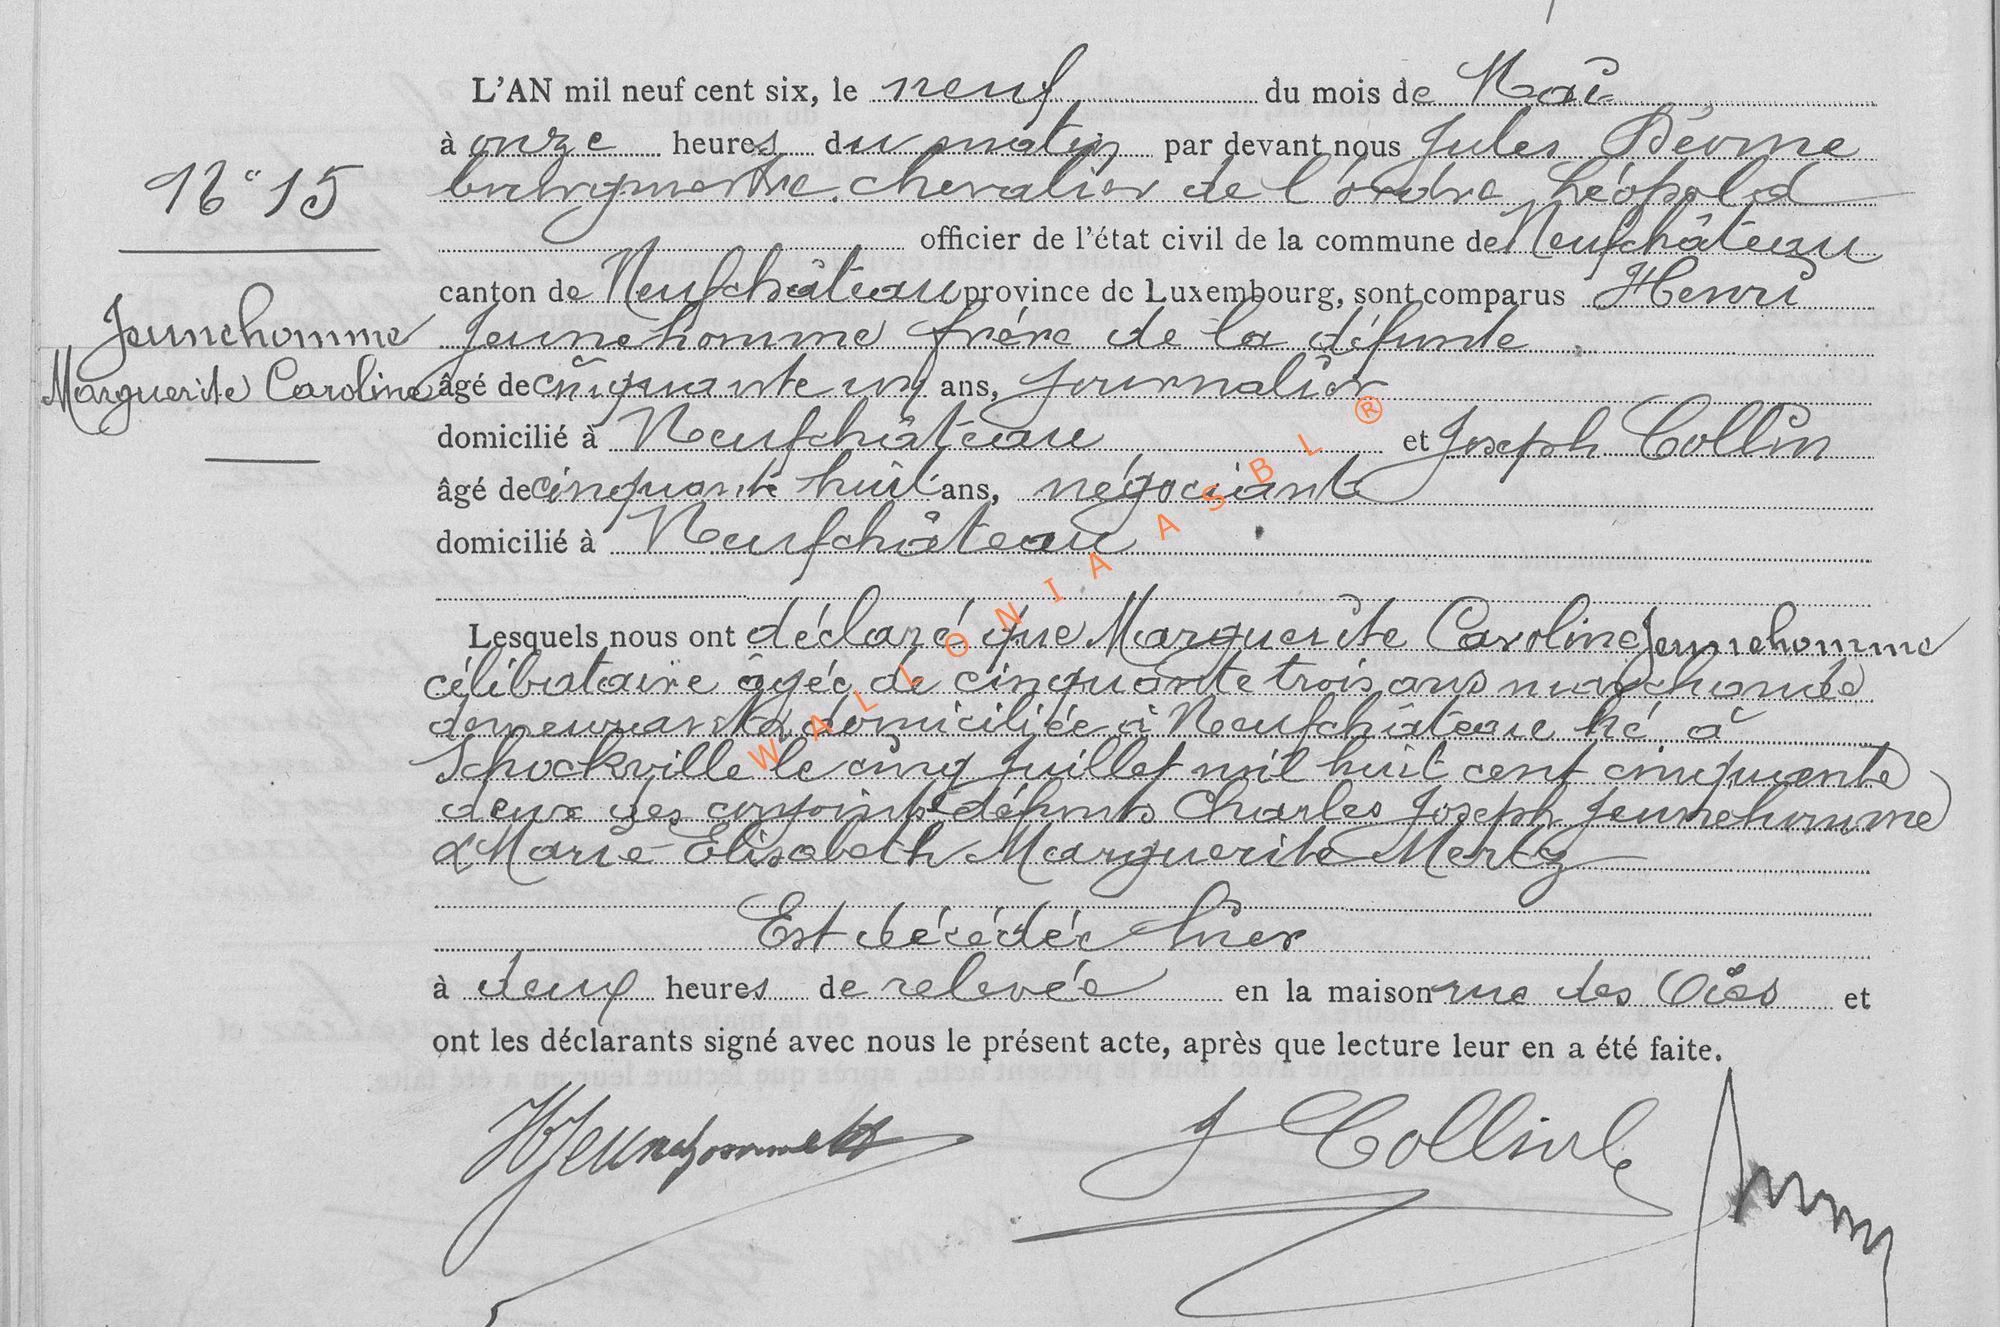 L'AN mil neuf cent six, le neuf du mois de Mai
à onze heures du matin par devant nous Jules
N° 15
bourgmestre. chevalier de l'ordre Léopold
officier de l'état civil de la commune de Neufchâteau
canton de Neufchâteau province de Luxembourg, sont comparus Henri
Jeunehomme
Jeunehomme frère de la défunte
Marguerite Caroline
âgé de cinquante un ans, journalier
domicilié à Neufchâteau et Joseph Collin
âgé de cinquante huit ans, négociant
domicilié à Neufchâteau
Lesquels nous ont déclaré que Marguerite Caroline Jeunehomme
célibataire âgée de cinquante trois ans marchande
demeurant & domiciliée à Neufchâteau né à
Schockville le cinq Juillet mil huit cent cinquante
deux des conjoints défunts Charles Joseph Jeunehomme
& Marie Elisabeth Marguerite Mertz
Est décédée hier
à deux heures de relevée en la maison rue des et
ont les déclarants signé avec nous le présent acte, après que lecture leur en a été faite.
HJeunehomme J Collin
WALLONIA ASBL ®